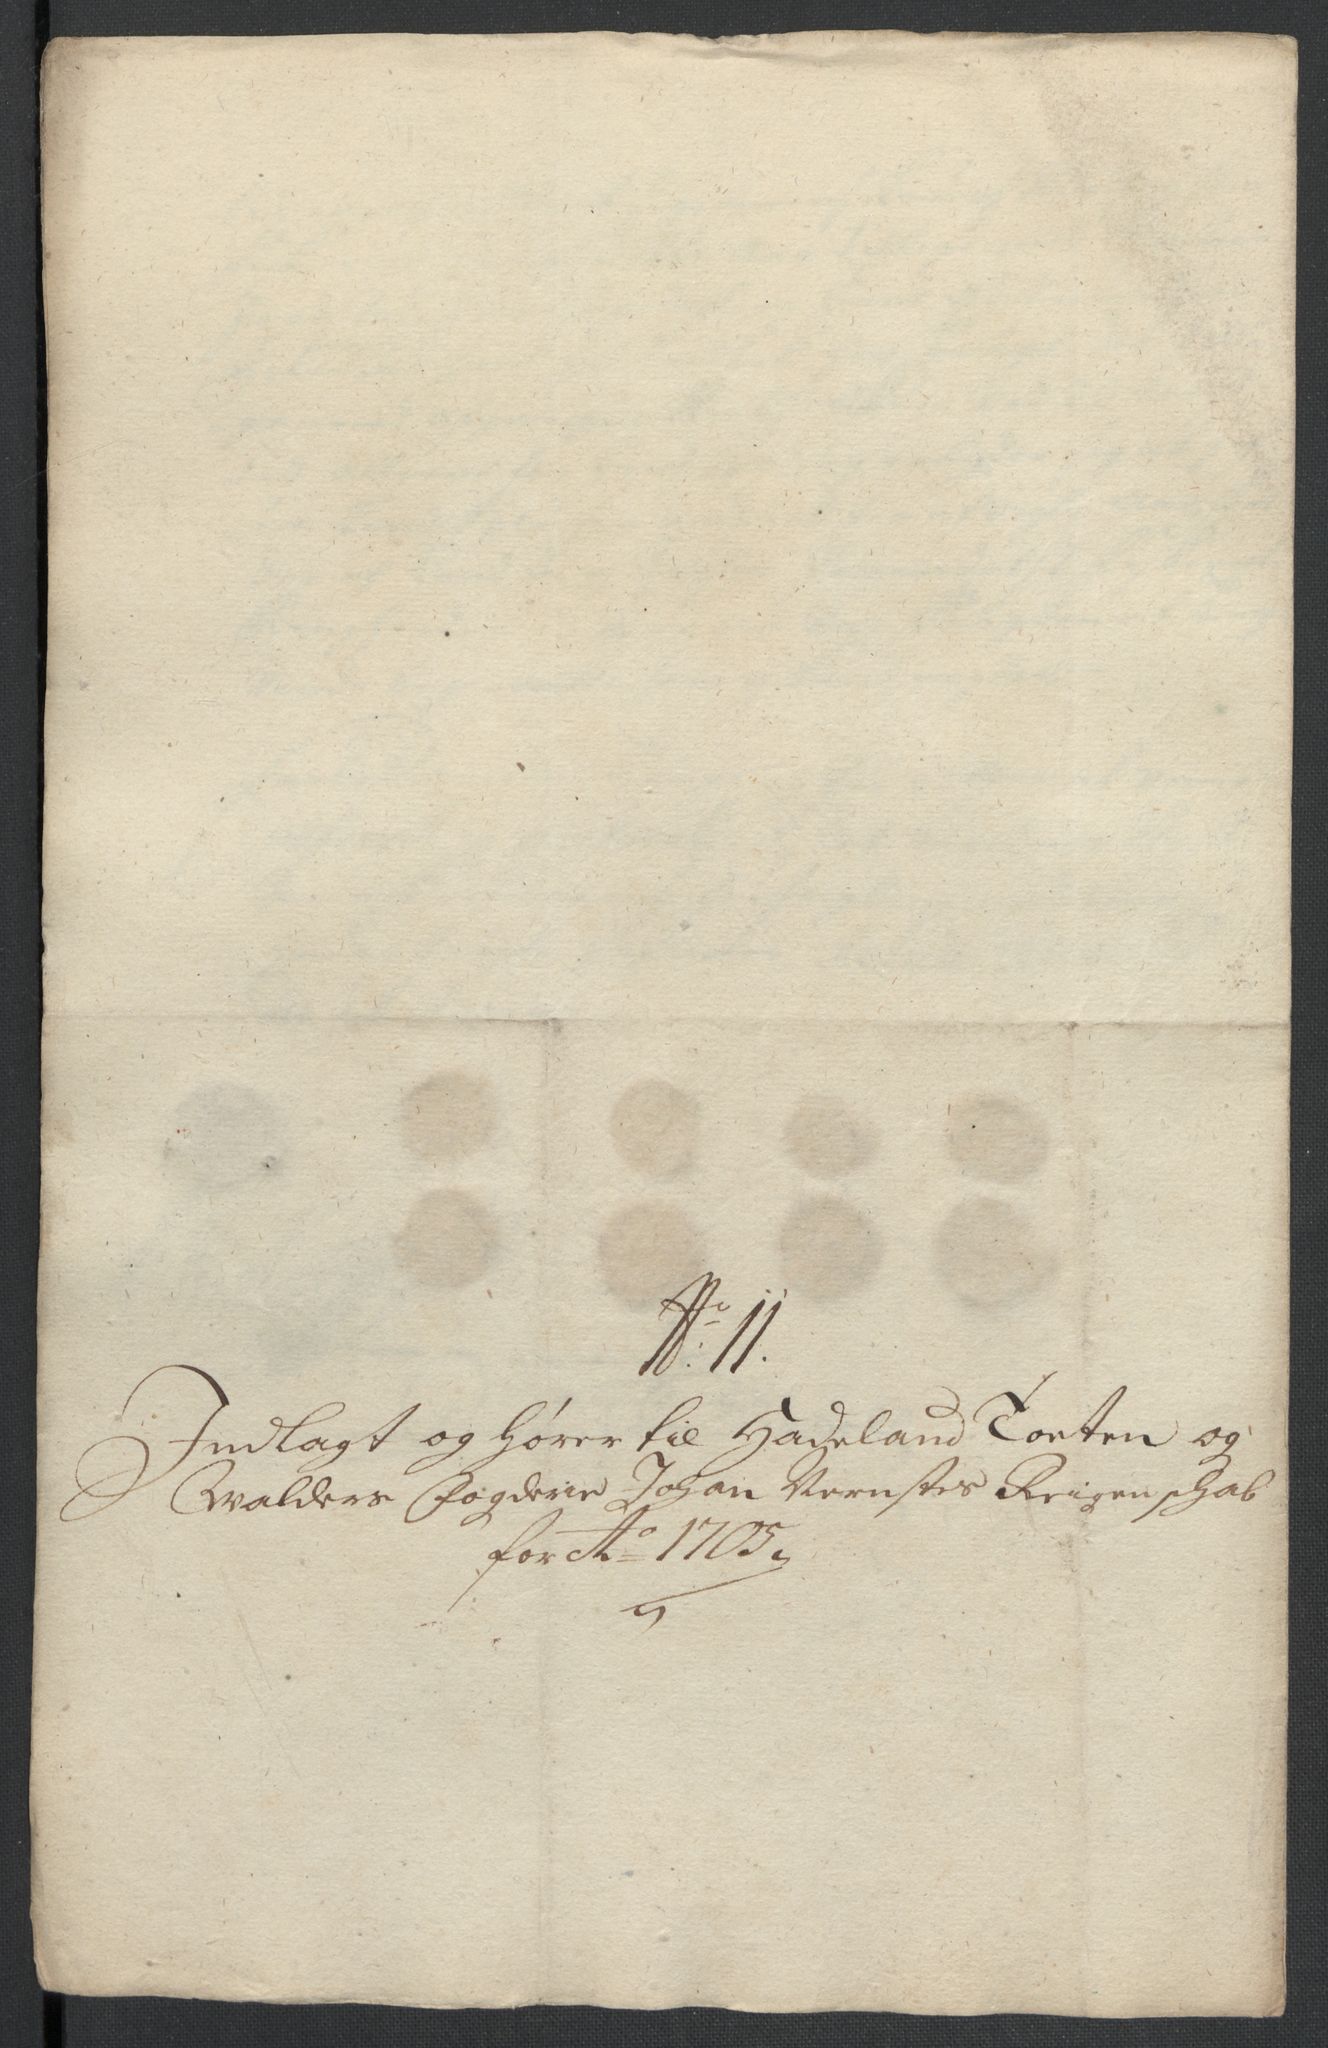 No: 11.
Indlagt og hører til Hadeland Toeten og
Walders Fogderie Johan Vernstes Reigenschab
for Ao 1705,